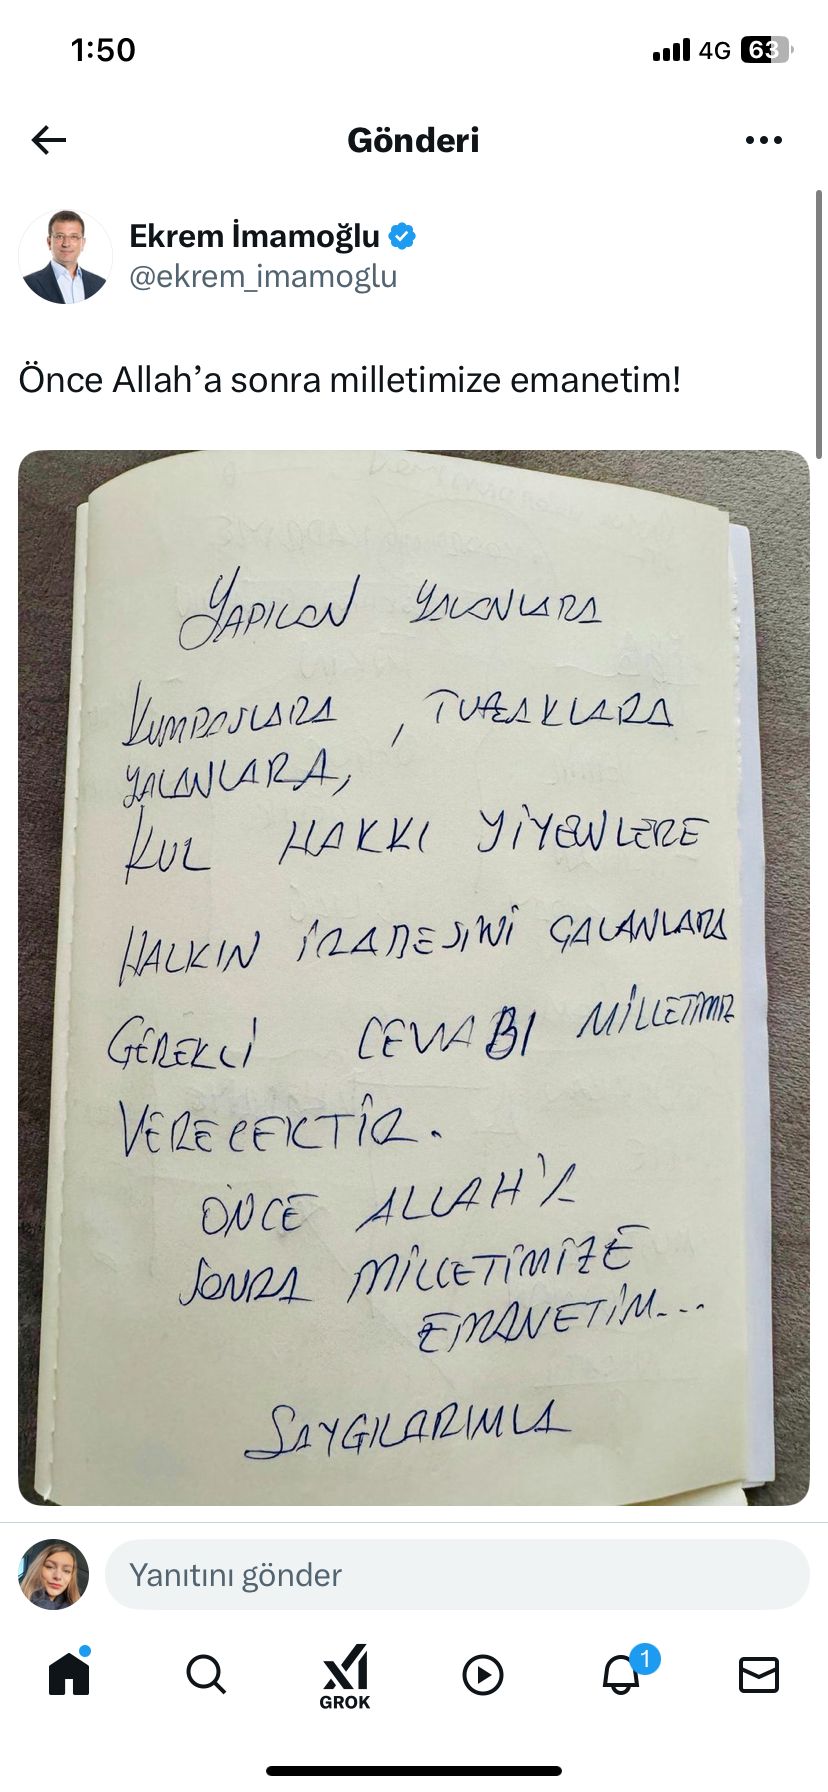 1:50
4G 63
Gönderi
Ekrem İmamoğlu
@ekrem_imamoglu
Önce Allah’a sonra milletimize emanetim!
YAPILAN YALANLARA
KUMPASLARA , TUZAKLARA
YALANLARA,
KUL HAKKI YİYENLERE
HALKIN İRADESİNİ ÇALANLARA
GEREKLİ CEVABI MİLLETİMİZ
VERECEKTİR.
ÖNCE ALLAH'A
SONRA MİLLETİMİZE
EMANETİM...
SAYGILARIMLA
Yanıtını gönder
1
GROK